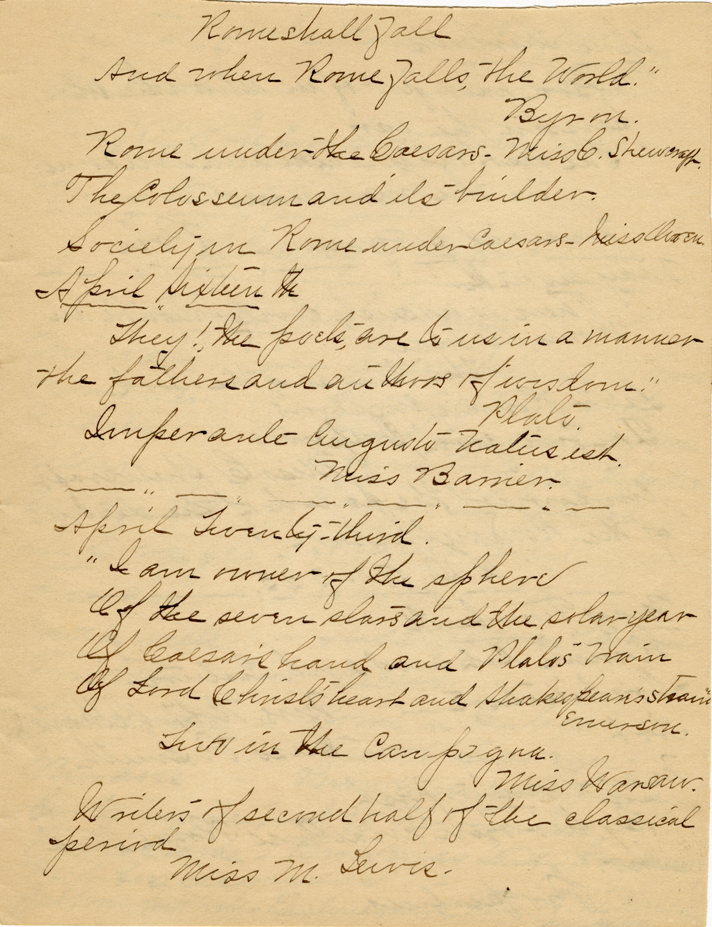 Rome shall fall
And when Rome falls, the World."
Byron.
Rome under the Caesars - Miss C. Shewcraft.
The Colosseum and its builder.
Society in Rome under Caesars - Miss
April Sixteenth
They! the poets, are to us in a manner
the fathers and authors of wisdom."
Plato.
Imperante Augusto Natus est.
Miss Barrier.
April Twenty-third.
"I am owner of the sphere
Of the seven stars and the solar year
Of Caesar's hand and Plato's brain
Of Lord Christ's heart and Shakespear's strain"
Emerson.
Two in the Campagna.
Miss Warsaw.
Writers of second half of the classical
period
Miss M. Lewis.